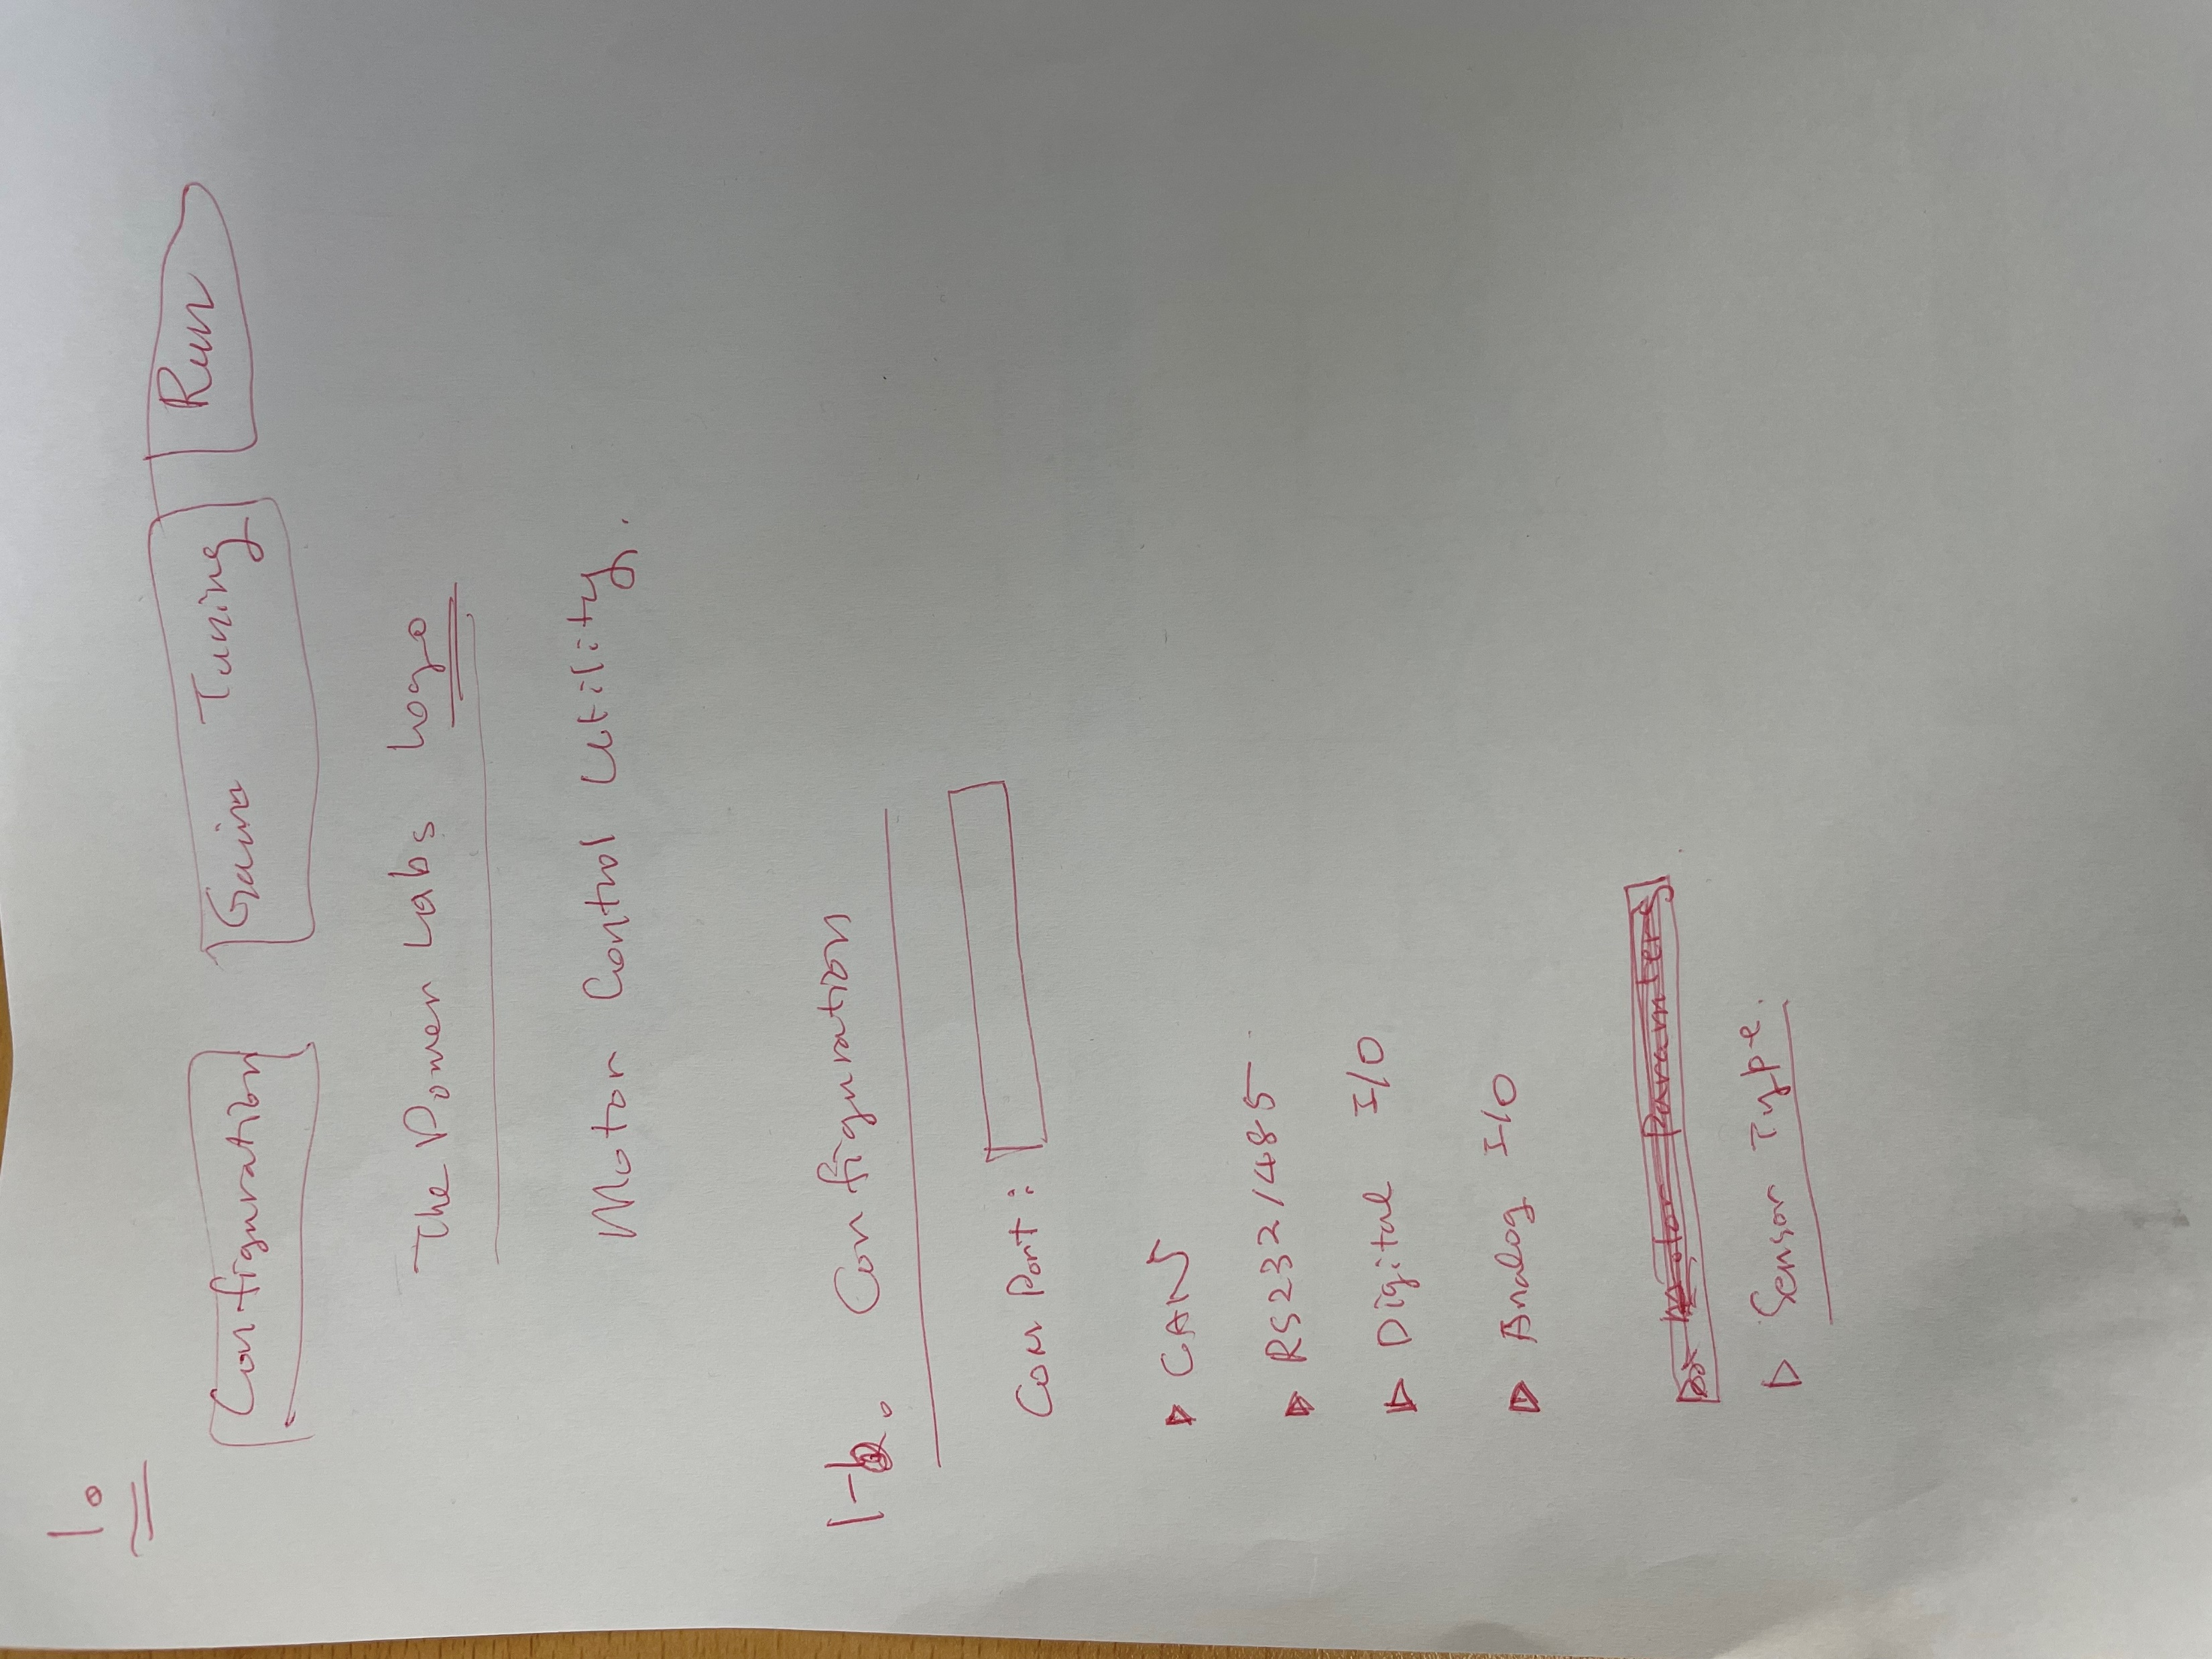 1.
Configuration Gain Tuning Run
The Power Labs Logo
Motor Control Utility.
Configuration
Com Port:
▷ CAN
▷ RS232/485
▷ Digital I/O
▷ Analog I/O
Motor Paramters
▷ Sensor Type.